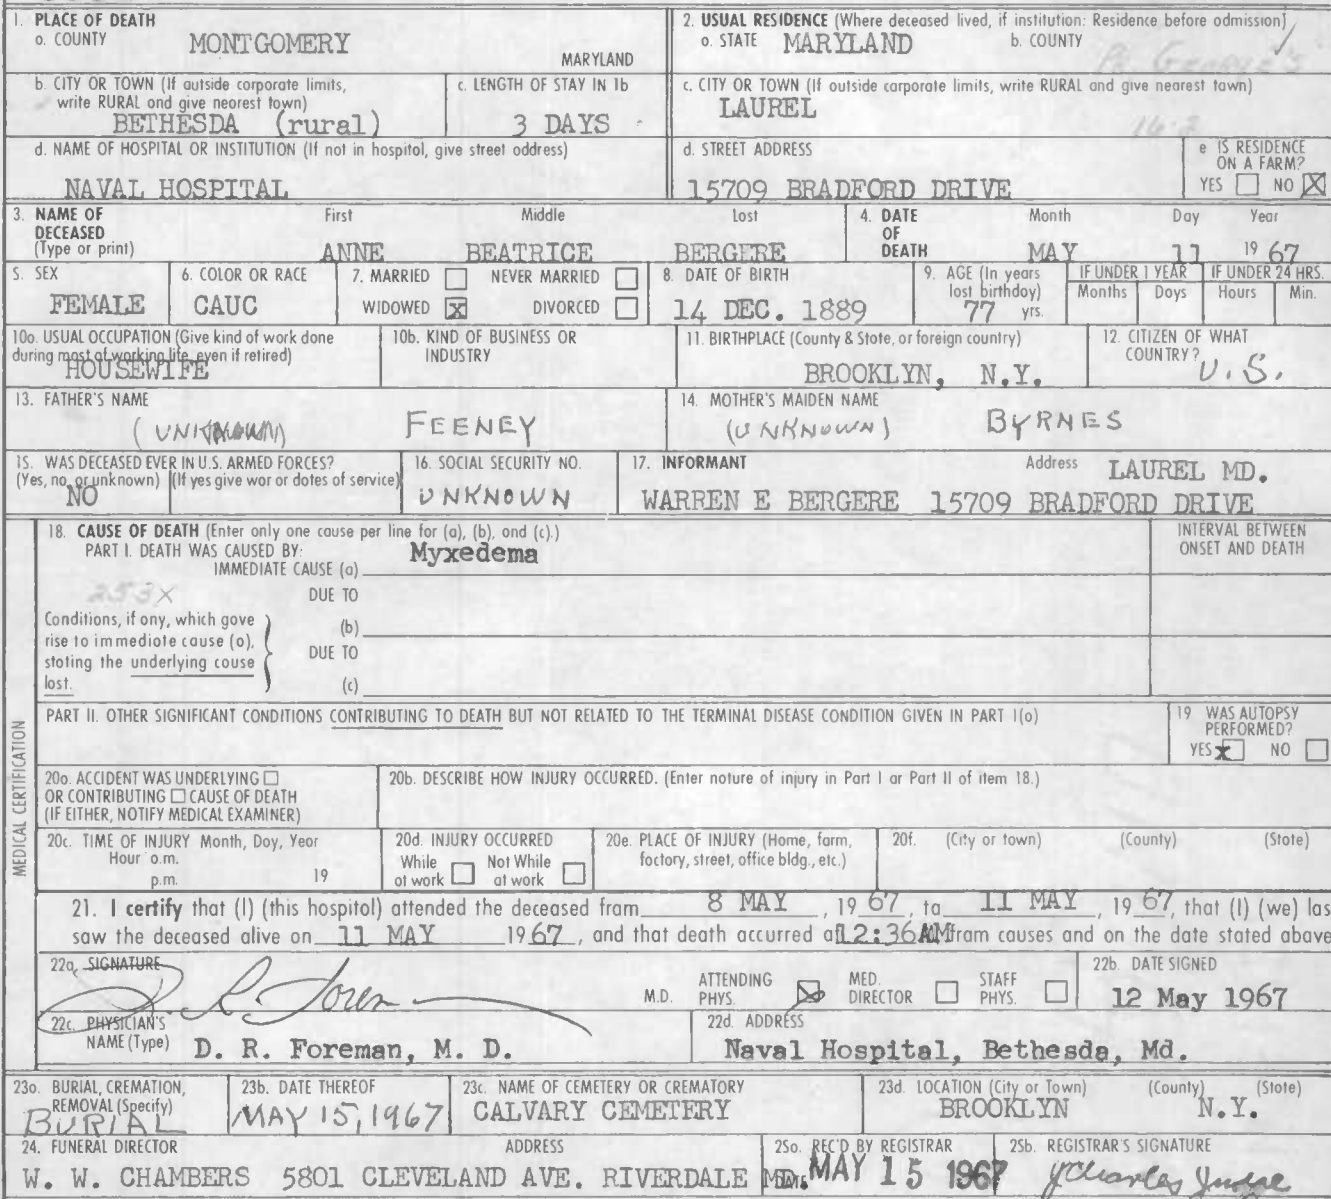 1. PLACE OF DEATH
a. COUNTY MONTGOMERY MARYLAND
2. USUAL RESIDENCE (Where deceased lived, if institution: Residence before admission)
a. STATE MARYLAND b. COUNTY Pr. George's
b. CITY OR TOWN (If outside corporate limits, write RURAL and give nearest town)
BETHESDA (rural)
c. LENGTH OF STAY IN 1b
3 DAYS
c. CITY OR TOWN (If outside corporate limits, write RURAL and give nearest town)
LAUREL
16-2
d. NAME OF HOSPITAL OR INSTITUTION (If not in hospital, give street address)
NAVAL HOSPITAL
d. STREET ADDRESS
15709 BRADFORD DRIVE
e IS RESIDENCE ON A FARM?
YES NO X
3. NAME OF DECEASED (Type or print)
First Middle Last
ANNE BEATRICE BERGERE
4. DATE OF DEATH
Month Day Year
MAY 11 19 67
5. SEX
FEMALE
6. COLOR OR RACE
CAUC
7. MARRIED NEVER MARRIED
WIDOWED X DIVORCED
8. DATE OF BIRTH
14 DEC. 1889
9. AGE (In years last birthday)
77 yrs.
IF UNDER 1 YEAR
Months Days
IF UNDER 24 HRS.
Hours Min.
10a. USUAL OCCUPATION (Give kind of work done during most of working life, even if retired)
HOUSEWIFE
10b. KIND OF BUSINESS OR INDUSTRY
11. BIRTHPLACE (County & State, or foreign country)
BROOKLYN, N.Y.
12. CITIZEN OF WHAT COUNTRY?
U.S.
13. FATHER'S NAME
(UNKNOWN) FEENEY
14. MOTHER'S MAIDEN NAME
(UNKNOWN) BYRNES
15. WAS DECEASED EVER IN U.S. ARMED FORCES?
(Yes, no, or unknown) (If yes give war or dates of service)
NO
16. SOCIAL SECURITY NO.
UNKNOWN
17. INFORMANT Address LAUREL MD.
WARREN E BERGERE 15709 BRADFORD DRIVE
MEDICAL CERTIFICATION
18. CAUSE OF DEATH (Enter only one cause per line for (a), (b), and (c).)
PART I. DEATH WAS CAUSED BY:
IMMEDIATE CAUSE (a) Myxedema
INTERVAL BETWEEN ONSET AND DEATH
253X
DUE TO
Conditions, if any, which gave rise to immediate cause (a), stating the underlying cause last.
(b)
DUE TO
(c)
PART II. OTHER SIGNIFICANT CONDITIONS CONTRIBUTING TO DEATH BUT NOT RELATED TO THE TERMINAL DISEASE CONDITION GIVEN IN PART I(a)
19 WAS AUTOPSY PERFORMED?
YES X NO
20a. ACCIDENT WAS UNDERLYING OR CONTRIBUTING CAUSE OF DEATH (IF EITHER, NOTIFY MEDICAL EXAMINER)
20b. DESCRIBE HOW INJURY OCCURRED. (Enter nature of injury in Part I or Part II of item 18.)
20c. TIME OF INJURY Month, Day, Year
Hour a.m.
p.m. 19
20d. INJURY OCCURRED
While at work Not While at work
20e. PLACE OF INJURY (Home, farm, factory, street, office bldg., etc.)
20f. (City or town) (County) (State)
21. I certify that (I) (this hospital) attended the deceased from 8 MAY, 19 67, to 11 MAY, 19 67, that (I) (we) las
saw the deceased alive on 11 MAY 19 67, and that death occurred at 12:36 AM from causes and on the date stated above
22a. SIGNATURE
D. R. Foreman
M.D. ATTENDING PHYS. X MED. DIRECTOR STAFF PHYS.
22b. DATE SIGNED
12 May 1967
22c. PHYSICIAN'S NAME (Type) D. R. Foreman, M. D.
22d. ADDRESS
Naval Hospital, Bethesda, Md.
23a. BURIAL, CREMATION, REMOVAL (Specify)
BURIAL
23b. DATE THEREOF
MAY 15, 1967
23c. NAME OF CEMETERY OR CREMATORY
CALVARY CEMETERY
23d. LOCATION (City or Town) (County) (State)
BROOKLYN N.Y.
24. FUNERAL DIRECTOR ADDRESS
W. W. CHAMBERS 5801 CLEVELAND AVE. RIVERDALE MD.
25a. REC'D BY REGISTRAR
DATE MAY 15 1967
25b. REGISTRAR'S SIGNATURE
J Charles Judge